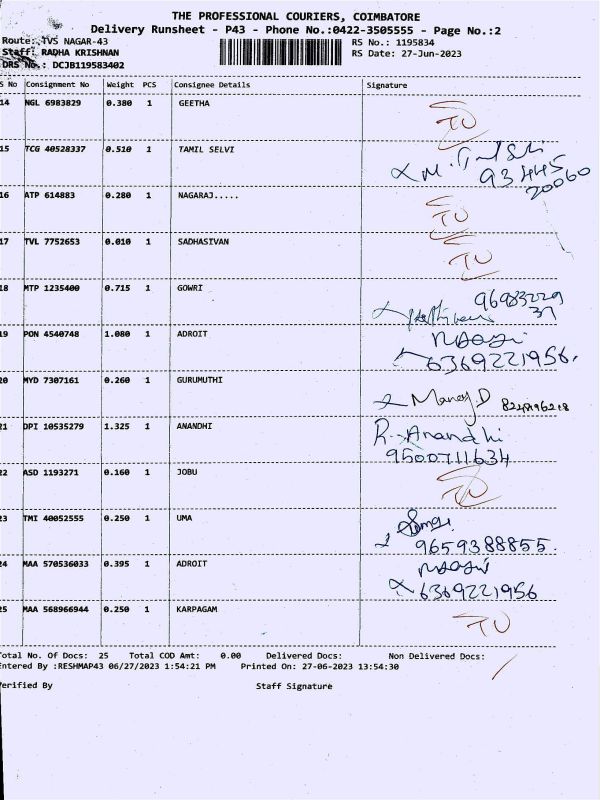 THE PROFESSIONAL COURIERS, COIMBATORE
Delivery Runsheet - P43 - Phone No.:0422-3505555 - Page No.:2
Route: TVS NAGAR-43 RS No.: 1195834
Staff: RADHA KRISHNAN RS Date: 27-Jun-2023
DRS No.: DCJB119583402
S No Consignment No Weight PCS Consignee Details Signature
14 NGL 6983829 0.380 1 GEETHA TU
15 TCG 40528337 0.510 1 TAMIL SELVI
93445
20060
16 ATP 614883 0.280 1 NAGARAJ..... TU
17 TVL 7752653 0.010 1 SADHASIVAN TU
18 MTP 1235400 0.715 1 GOWRI 96983229
37
19 PON 4540748 1.080 1 ADROIT
6369221956.
20 MYD 7307161 0.260 1 GURUMUTHI Manoj.D
21 DPI 10535279 1.325 1 ANANDHI R. Anandhi
9500711634
22 ASD 1193271 0.160 1 JOBU TU
23 TMI 40052555 0.250 1 UMA
9659388855.
24 MAA 570536033 0.395 1 ADROIT
6369221956
25 MAA 568966944 0.250 1 KARPAGAM TU
Total No. Of Docs: 25 Total COD Amt: 0.00 Delivered Docs: Non Delivered Docs:
Entered By :RESHMAP43 06/27/2023 1:54:21 PM Printed On: 27-06-2023 13:54:30
Verified By Staff Signature